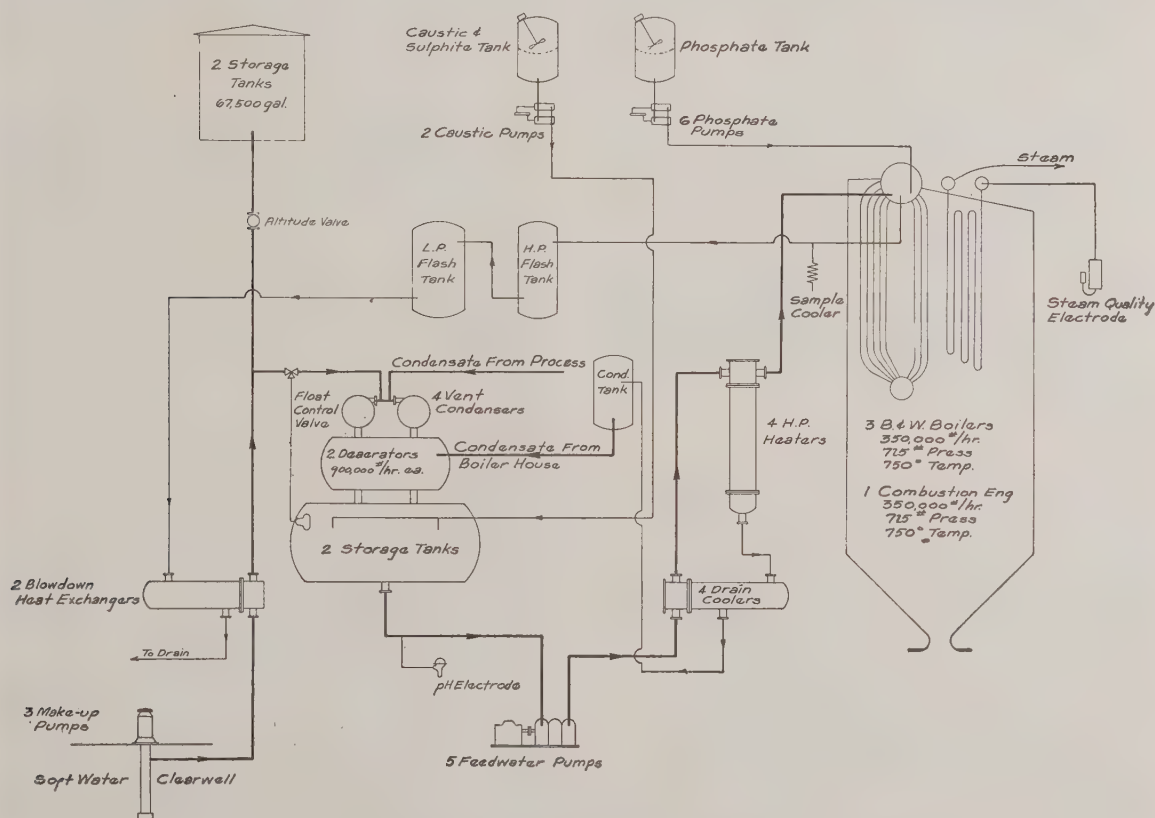 Caustic &
Sulphite Tank
Phosphate Tank
2 Storage
Tanks
67,500 gal.
2 Caustic Pumps
6 Phosphate
Pumps
Steam
Altitude Valve
L.P.
Flash
Tank
H.P.
Flash
Tank
Sample
Cooler
Steam Quality
Electrode
Condensate From Process
Float
Control
Valve
4 Vent
Condensers
Cond.
Tank
2 Deaerators
900,000 #/hr. ea.
Condensate From
Boiler House
4 H.P.
Heaters
3 B.&W. Boilers
350,000 #/hr.
725 # Press
750° Temp.
1 Combustion Eng
350,000 #/hr.
725 # Press
750° Temp.
2 Storage Tanks
2 Blowdown
Heat Exchangers
4 Drain
Coolers
To Drain
pH Electrode
3 Make-up
Pumps
5 Feedwater Pumps
Soft Water Clearwell